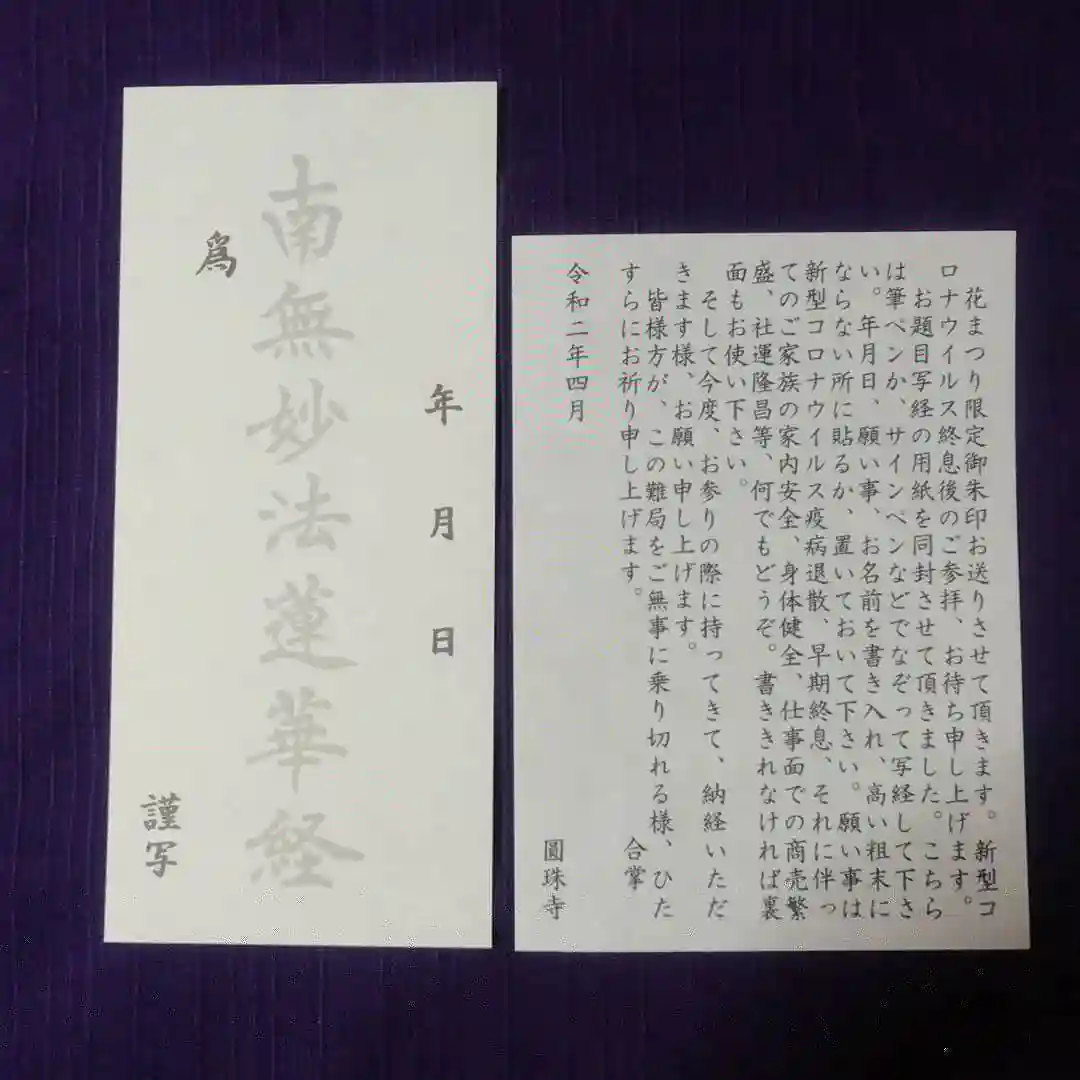 年 月 日
南無妙法蓮華経
爲
謹写
花まつり限定御朱印お送りさせて頂きます。新型コ
ロナウイルス終息後のご参拝、お待ち申し上げます。
お題目写経の用紙を同封させて頂きました。こちら
は筆ペンか、サインペンなどでなぞって写経して下さ
い。年月日、願い事、お名前を書き入れ、高い粗末に
ならない所に貼るか、置いておいて下さい。願い事は
新型コロナウイルス疫病退散、早期終息、それに伴っ
てのご家族の家内安全、身体健全、仕事面での商売繁
盛、社運隆昌等、何でもどうぞ。書ききれなければ裏
面もお使い下さい。
そして今度、お参りの際に持ってきて、納経いただ
きます様、お願い申し上げます。
皆様方が、この難局をご無事に乗り切れる様、ひた
すらにお祈り申し上げます。
合掌
令和二年四月
圓珠寺